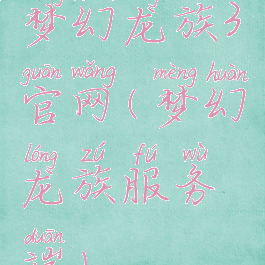 梦幻龙族3
guān wǎng mèng huàn
官网(梦幻
lóng zú fú wù
龙族服务
duān
端)